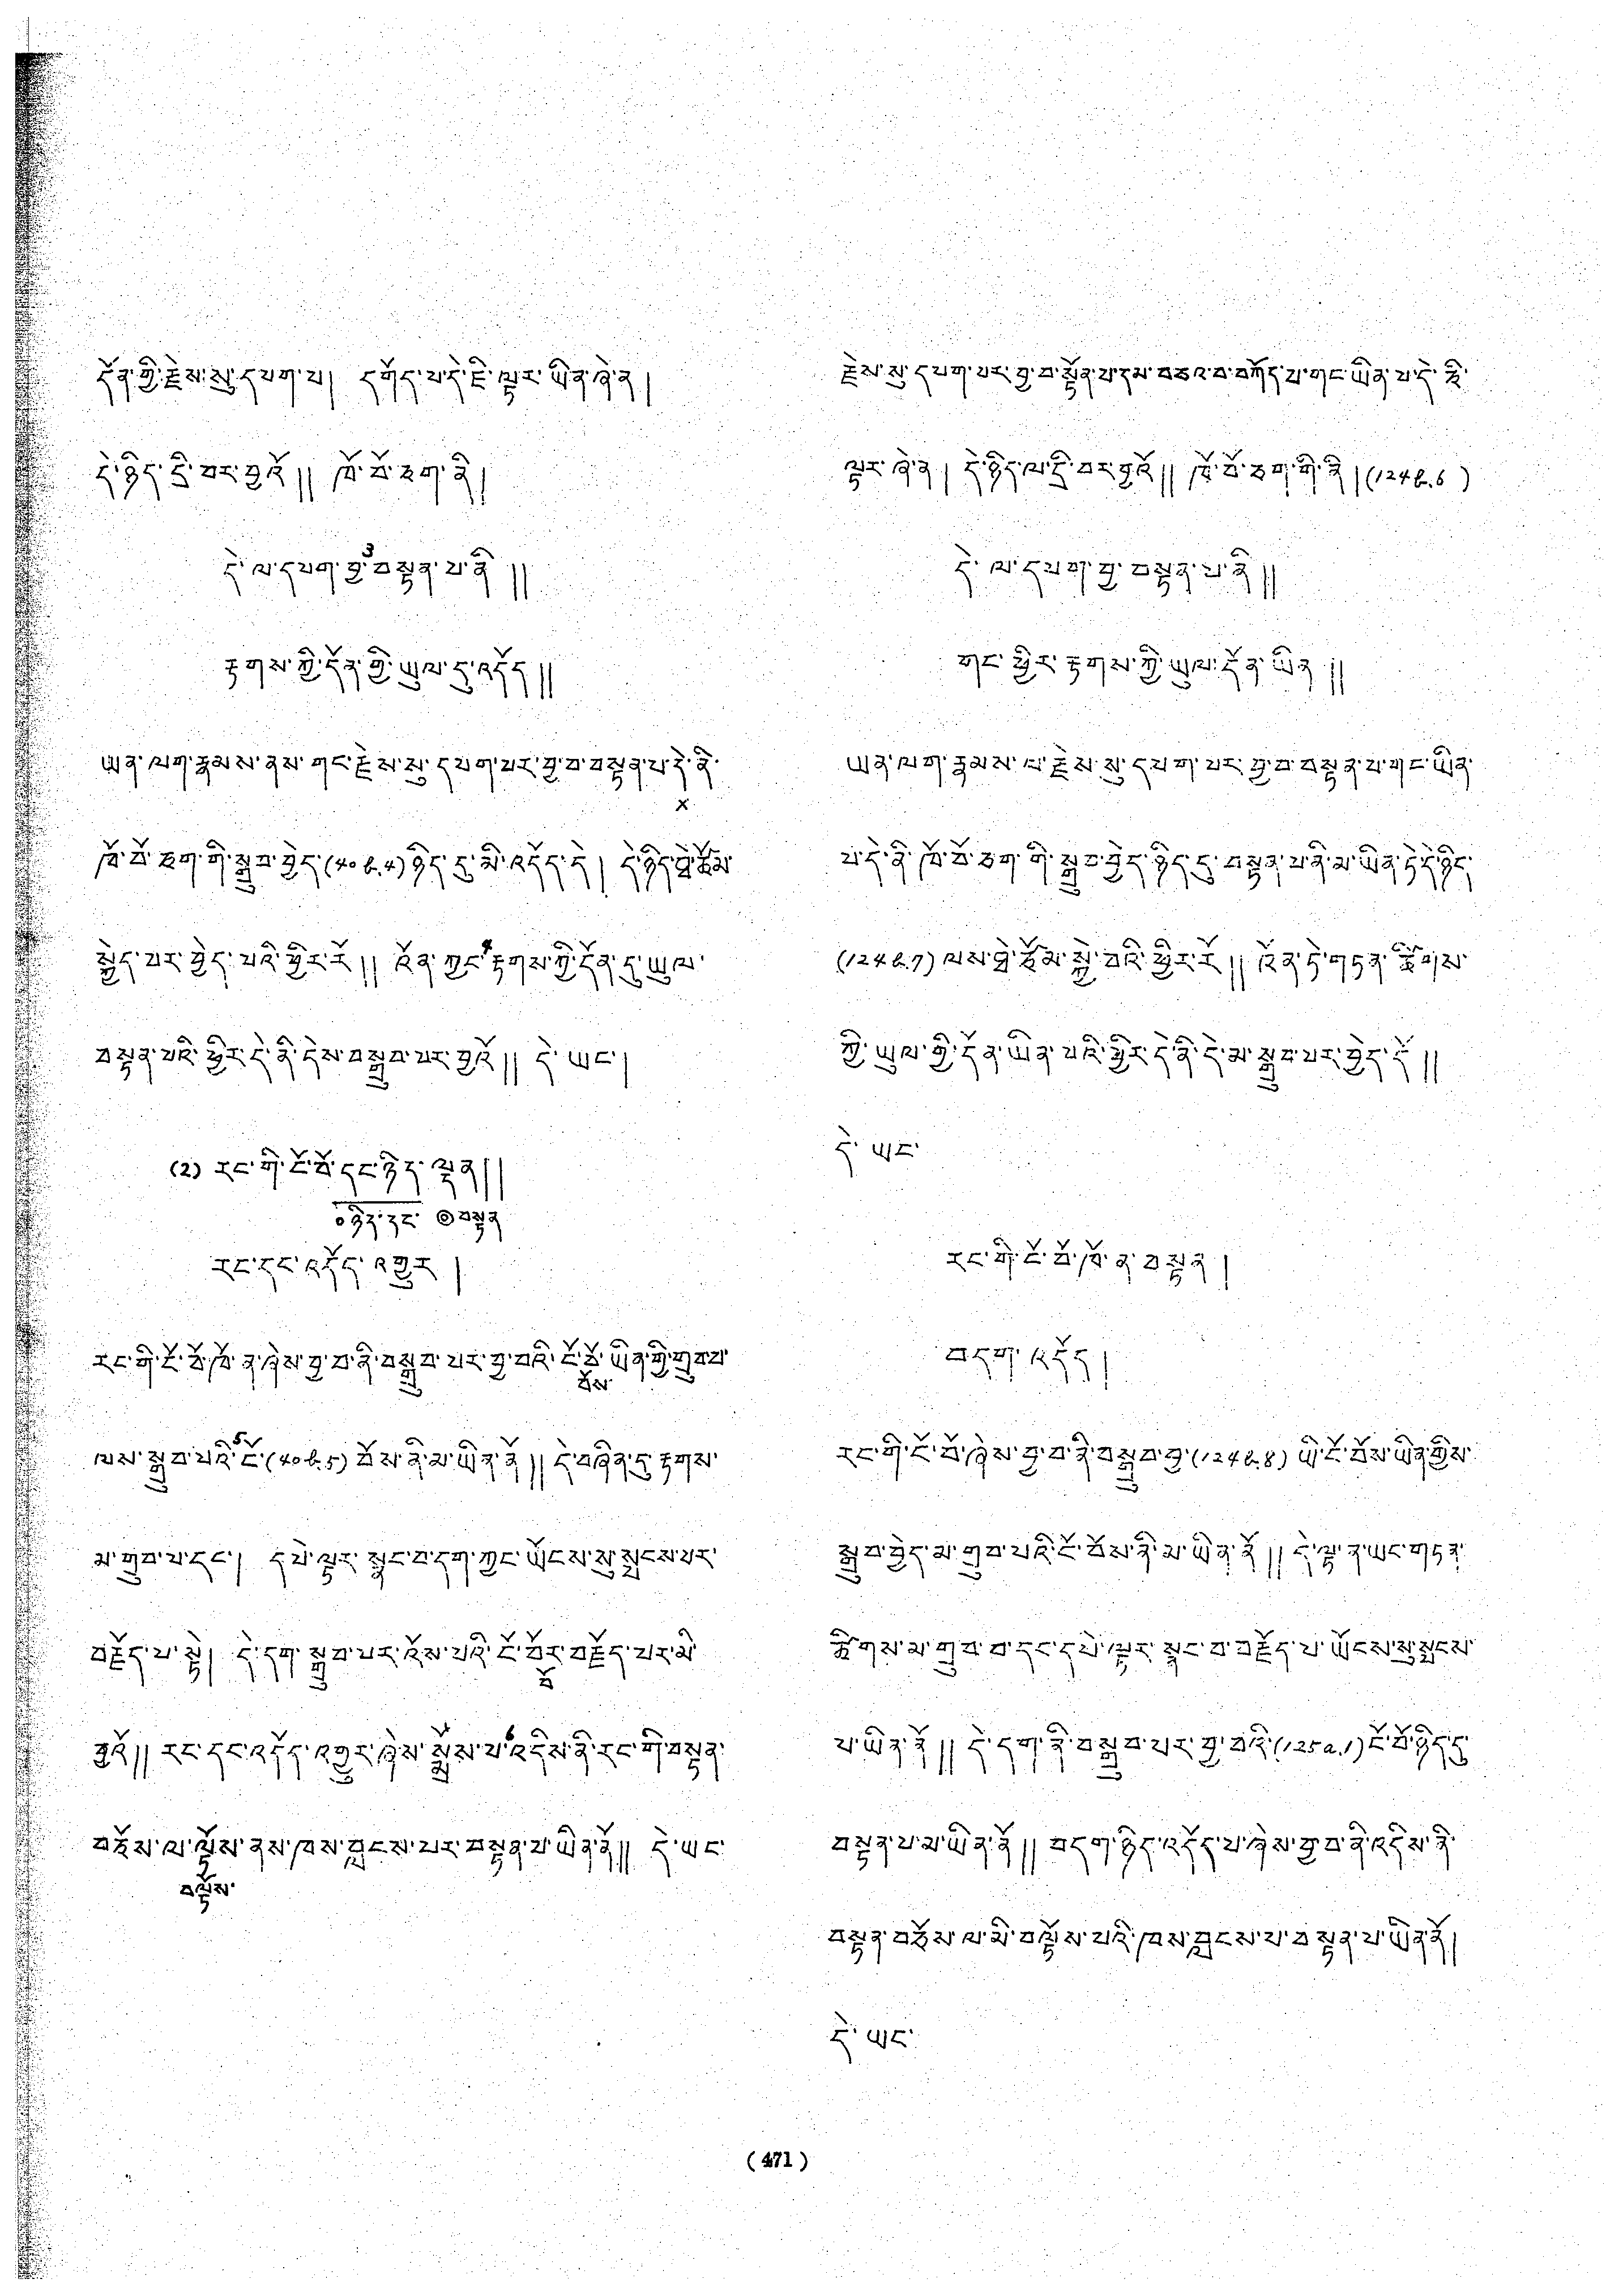 དོན་གྱི་རྗེས་སུ་དཔག་པ། དགོད་པ་དེ་ཇི་ལྟར་ཡིན་ཞེ་ན།
དེ་ཉིད་དྲི་བར་བྱའོ།། ཁོ་བོ་ཅག་ནི།
དེ་ལ་དཔག་བྱ་3བསྟན་པ་ནི།།
རྟགས་ཀྱི་དོན་གྱི་ཡུལ་དུ་འདོད།།
ཡན་ལག་རྣམས་ནས་གང་རྗེས་སུ་དཔག་པར་བྱ་བ་བསྟན་པ་དེ་ནི་
x
ཁོ་བོ་ཅག་གི་སྒྲུབ་བྱེད་(40b.4)ཉིད་དུ་མི་འདོད་དེ། དེ་ཉིད་ཐེ་ཚོམ་
སྐྱེད་པར་བྱེད་པའི་ཕྱིར་རོ།། འོན་ཀྱང་4རྟགས་ཀྱི་དོན་དུ་ཡུལ་
བསྟན་པའི་ཕྱིར་དེ་ནི་དེས་བསྒྲུབ་པར་བྱའོ།། དེ་ཡང་།
(2) རང་གི་ངོ་བོ་དང་ཉིད་ལྡན།།
०ཉིད་དང་ ◎བསྟན
རང་དང་འདོད་འགྱུར།
རང་གི་ངོ་བོ་ཁོ་ན་ཞེས་བྱ་བ་ནི་བསྒྲུབ་པར་བྱ་བའི་ངོ་བོ་ཡིན་གྱི་གྲུབ་པ་
བོས་
ལས་སྒྲུབ་པའི་5ངོ་(40b.5)བོས་ནི་མ་ཡིན་ནོ།། དེ་བཞིན་དུ་རྟགས་
མ་གྲུབ་པ་དང་། དཔེ་ལྟར་སྣང་བ་དག་ཀྱང་ཡོངས་སུ་སྤངས་པར་
བརྗོད་པ་སྟེ། དེ་དག་སྒྲུབ་པར་འོས་པའི་ངོ་བོར་བརྗོད་པར་མི་
བོ
བྱའོ།། རང་དང་འདོད་འགྱུར་ཞེས་སྨོས་པ་6འདིས་ནི་རང་གི་བསྟན་
བཅོས་ལ་ལྟོས་ནས་ཁས་བླངས་པར་བསྟན་པ་ཡིན་ནོ།། དེ་ཡང་
བལྟོས་
རྗེས་སུ་དཔག་པར་བྱ་བ་སྟོན་པ་དམ་བཅའ་བ་བཀོད་པ་གང་ཡིན་པ་དེ་ཇི་
ལྟར་ཞེ་ན། དེ་ཉིད་ལ་དྲི་བར་བྱའོ།། ཁོ་བོ་ཅག་གི་ནི།(124b.6)
དེ་ལ་དཔག་བྱ་བསྟན་པ་ནི།།
གང་ཕྱིར་རྟགས་ཀྱི་ཡུལ་དོན་ཡིན།།
ཡན་ལག་རྣམས་ལ་རྗེས་སུ་དཔག་པར་བྱ་བ་བསྟན་པ་གང་ཡིན་
པ་དེ་ནི་ཁོ་བོ་ཅག་གི་སྒྲུབ་བྱེད་ཉིད་དུ་བསྟན་པ་ནི་མ་ཡིན་ཏེ་དེ་ཉིད་
(124b.7)ལས་ཐེ་ཚོམ་སྐྱེ་བའི་ཕྱིར་རོ།། འོན་ཏེ་གཏན་ཚིགས་
ཀྱི་ཡུལ་གྱི་དོན་ཡིན་པའི་ཕྱིར་དེ་ནི་དེ་མ་སྒྲུབ་པར་བྱེད་དོ།།
དེ་ཡང་
རང་གི་ངོ་བོ་ཁོ་ན་བསྟན།
བདག་འདོད།
རང་གི་ངོ་བོ་ཞེས་བྱ་བ་ནི་བསྒྲུབ་བྱ་(124b.8)ཡི་ངོ་བོས་ཡིན་གྱིས་
སྒྲུབ་བྱེད་མ་གྲུབ་པའི་ངོ་བོས་ནི་མ་ཡིན་ནོ།། དེ་ལྟ་ན་ཡང་གཏན་
ཚིགས་མ་གྲུབ་བ་དང་དཔེ་ལྟར་སྣང་བ་བརྗོད་པ་ཡོངས་སུ་སྤངས་
པ་ཡིན་ནོ།། དེ་དག་ནི་བསྒྲུབ་པར་བྱ་བའི་(125a.1)ངོ་བོ་ཉིད་དུ་
བསྟན་པ་མ་ཡིན་ནོ།། བདག་ཉིད་འདོད་པ་ཞེས་བྱ་བ་ནི་འདིས་ནི་
བསྟན་བཅོས་ལ་མི་བལྟོས་པའི་ཁས་བླངས་པ་བསྟན་པ་ཡིན་ནོ།
དེ་ཡང་
(471)